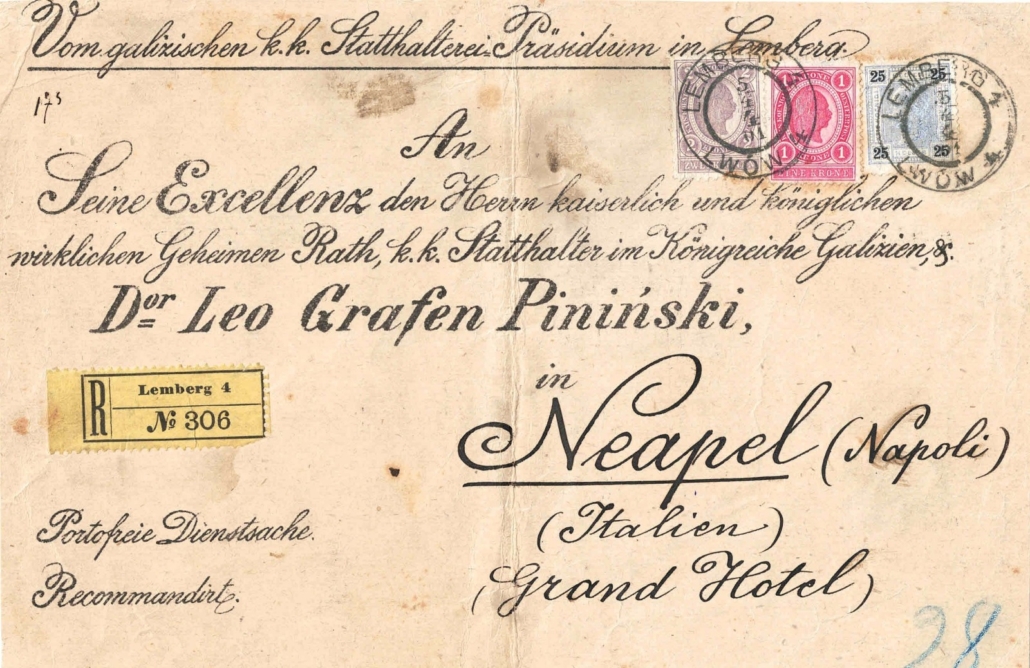 Vom galizischen k.k. Statthalterei Präsidium in Lemberg.
LEMBERG 4
LWÓW
2
1 KRONE 1
1 1
EINE KRONE
25 25
25 25
LEMBERG 4
LWÓW
173
An
Seine Excellenz den Herrn kaiserlich und königlichen
wirklichen Geheimen Rath, k.k. Statthalter im Königreiche Galizien, &.
Dor Leo Grafen Piniński,
in
R Lemberg 4
№ 306
Neapel (Napoli)
(Italien)
Portofreie Dienstsache.
(Grand Hotel)
Recommandirt.
28